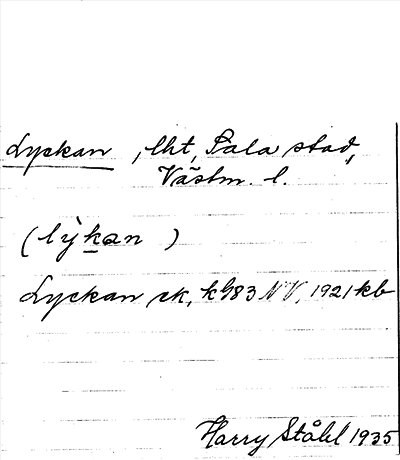 Lyckan, lht, Sala stad,
Västm. l.
(lỳkan)
Lyckan ek, k 983 NV, 1921 kb
Harry Ståhl 1935